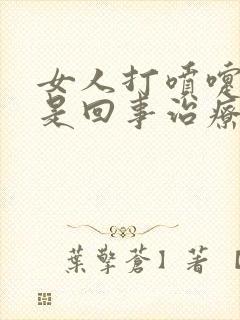 女人打噴嚏
是回事治療
葉擎蒼】著【